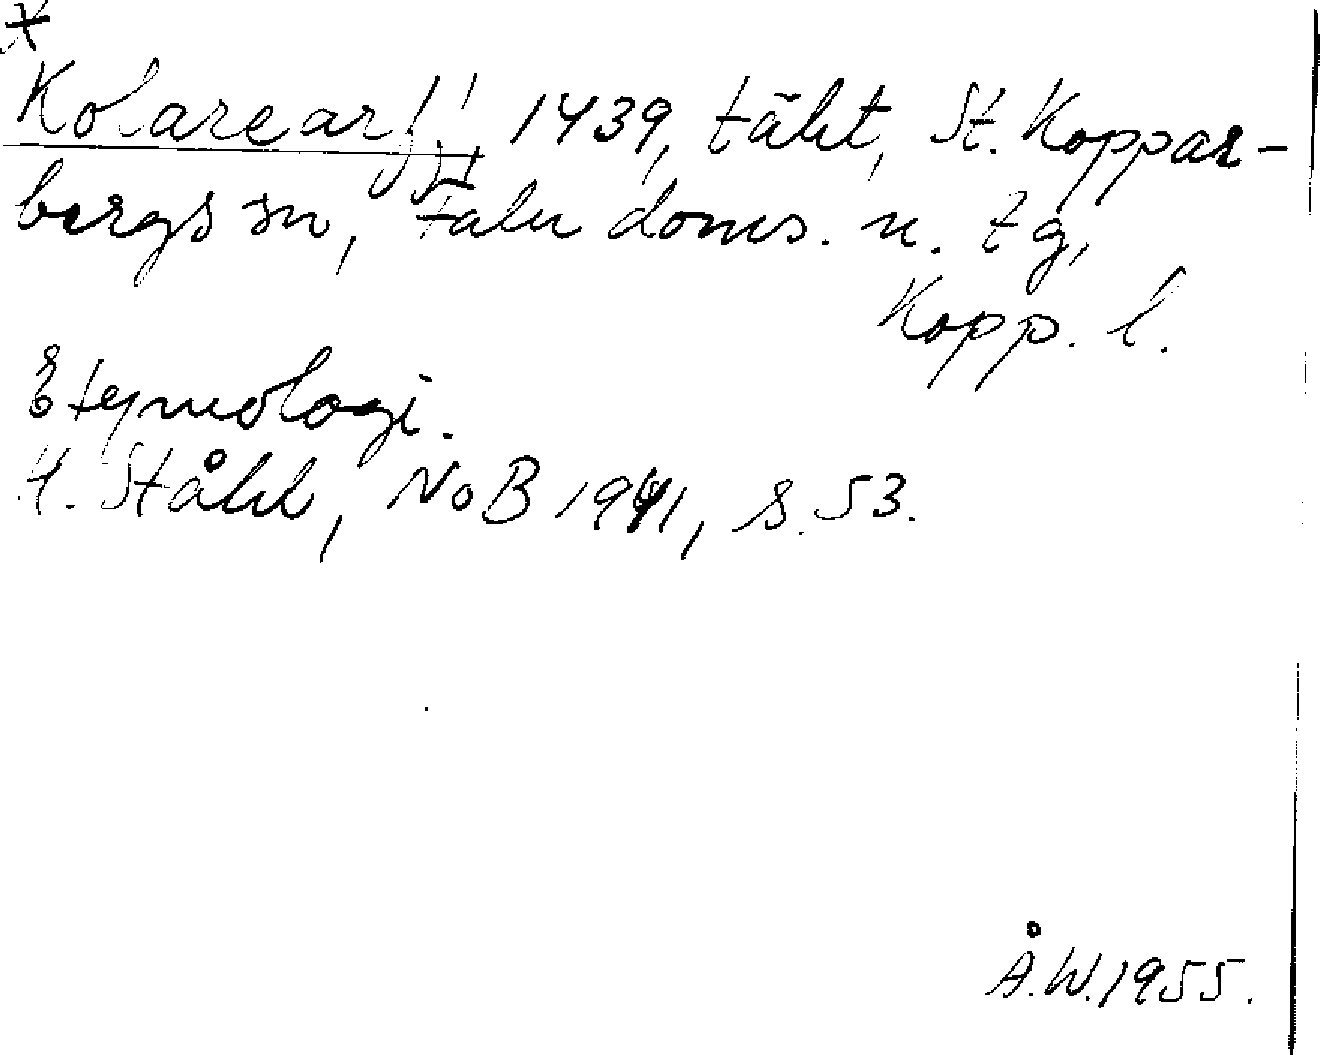 +
Kolarearff, 1439, täkt, St. Koppar-
bergs sn, Falu doms. u. tg,
Kopp. l.
Etymologi.
H. Ståhl, NoB 1941, s. 53.
Å.W. 1955.